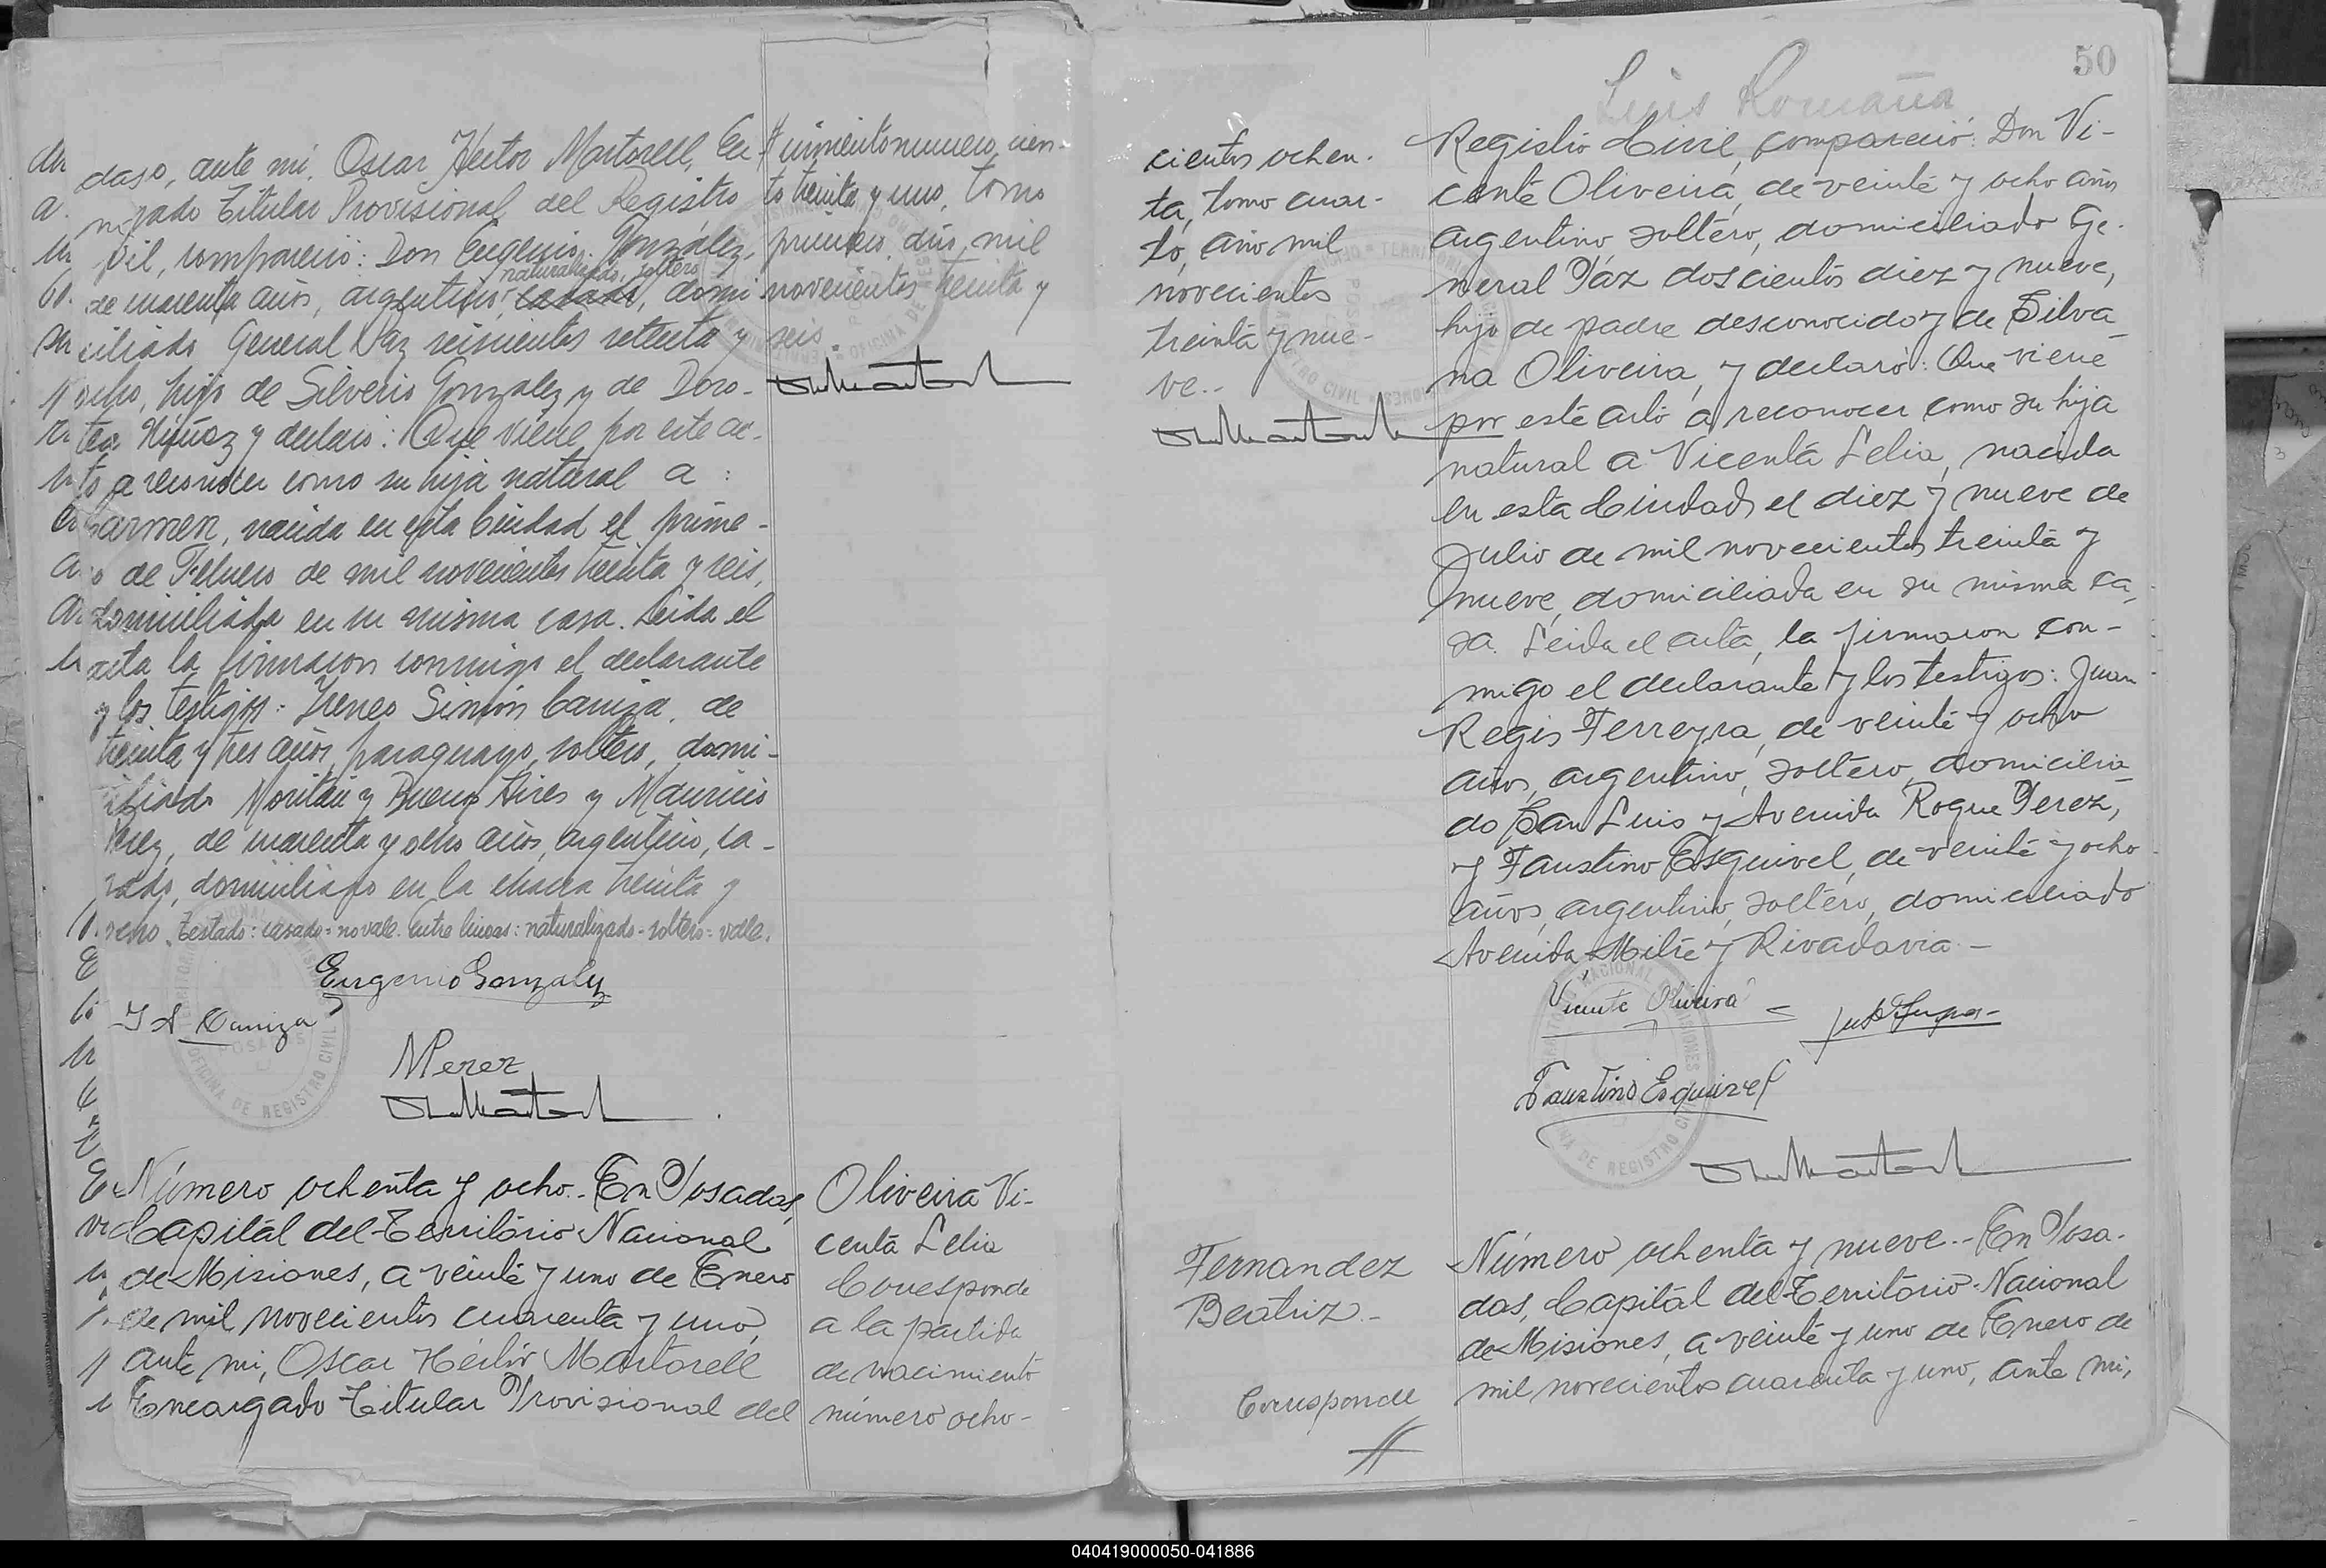 daso, ante mi, Oscar Hector Martorell, En
gado Titular Provisional del Registro
vil, compareció: Don Eugenio Gonzalez,
naturalizado, soltero
de cuarenta años, argentino, casado, domi
ciliado General Paz seiscientos setenta y
ocho, hijo de Silverio Gonzalez y de Doro-
tea y declaró: Que viene por este ac-
to a reconocer como su hija natural a :
Carmen, nacida en esta Ciudad el prime-
ro de Febrero de mil novecientos treinta y seis,
domiciliada en su misma casa. Leida el
acta la firmaron conmigo el declarante
y los testigos: Ireneo Simón Caniza, de
treinta y tres años, paraguayo, soltero, domi-
ciliado y Buenos Aires y Mauricio
Perez, de cuarenta y ocho años, argentino, ca-
sado, domiciliado en la chacra treinta y
ocho. Testado: casado=no vale. Entre lineas: naturalizado-soltero=vale.
Eugenio Gonzalez
Caniza
MPerez
# cimiento numero cien-
to treinta y uno, tomo
primero, año mil
novecientos treinta y
seis.
Número ochenta y ocho.- En Posadas,
Capital del Territorio Nacional
de Misiones, a veinte y uno de Enero
de mil novecientos cuarenta y uno,
ante mi, Oscar Héctor Martorell
Encargado Titular Provisional del
Oliveira Vi-
centa Lelia
Corresponde
a la partida
de nacimiento
número ocho-
50
Luis Romaña
cientos ochen-
ta, tomo cuar-
to, año mil
novecientos
treinta y nue-
ve.-
Registro Civil, compareció: Don Vi-
cente Oliveira, de veinte y ocho años
argentino soltero, domiciliado Ge-
neral Paz doscientos diez y nueve,
hijo de padre desconocido y de Silva
na Oliveira, y declaró: Que viene
por este acto a reconocer como su hija
natural a Vicenta Lelia, nacida
en esta Ciudad el diez y nueve de
Julio de mil novecientos treinta y
nueve, domiciliada en su misma ca-
sa. Leida el acta, la firmaron con-
migo el declarante y los testigos: Juan
Regis Ferreyra, de veinte y ocho
años, argentino, soltero, domicilia
do San Luis y Avenida Roque Perez,
y Faustino Esquivel, de veinte y ocho
años, argentino, soltero, domiciliado
Avenida Mitre y Rivadavia.-
Vicente Oliveira
Faustino Esquivel
Fernandez
Beatriz.-
Corresponde
#
Número ochenta y nueve.- En Posa-
das, Capital del Territorio Nacional
de Misiones, a veinte y uno de Enero de
mil novecientos cuarenta y uno, ante mi,
040419000050-041886